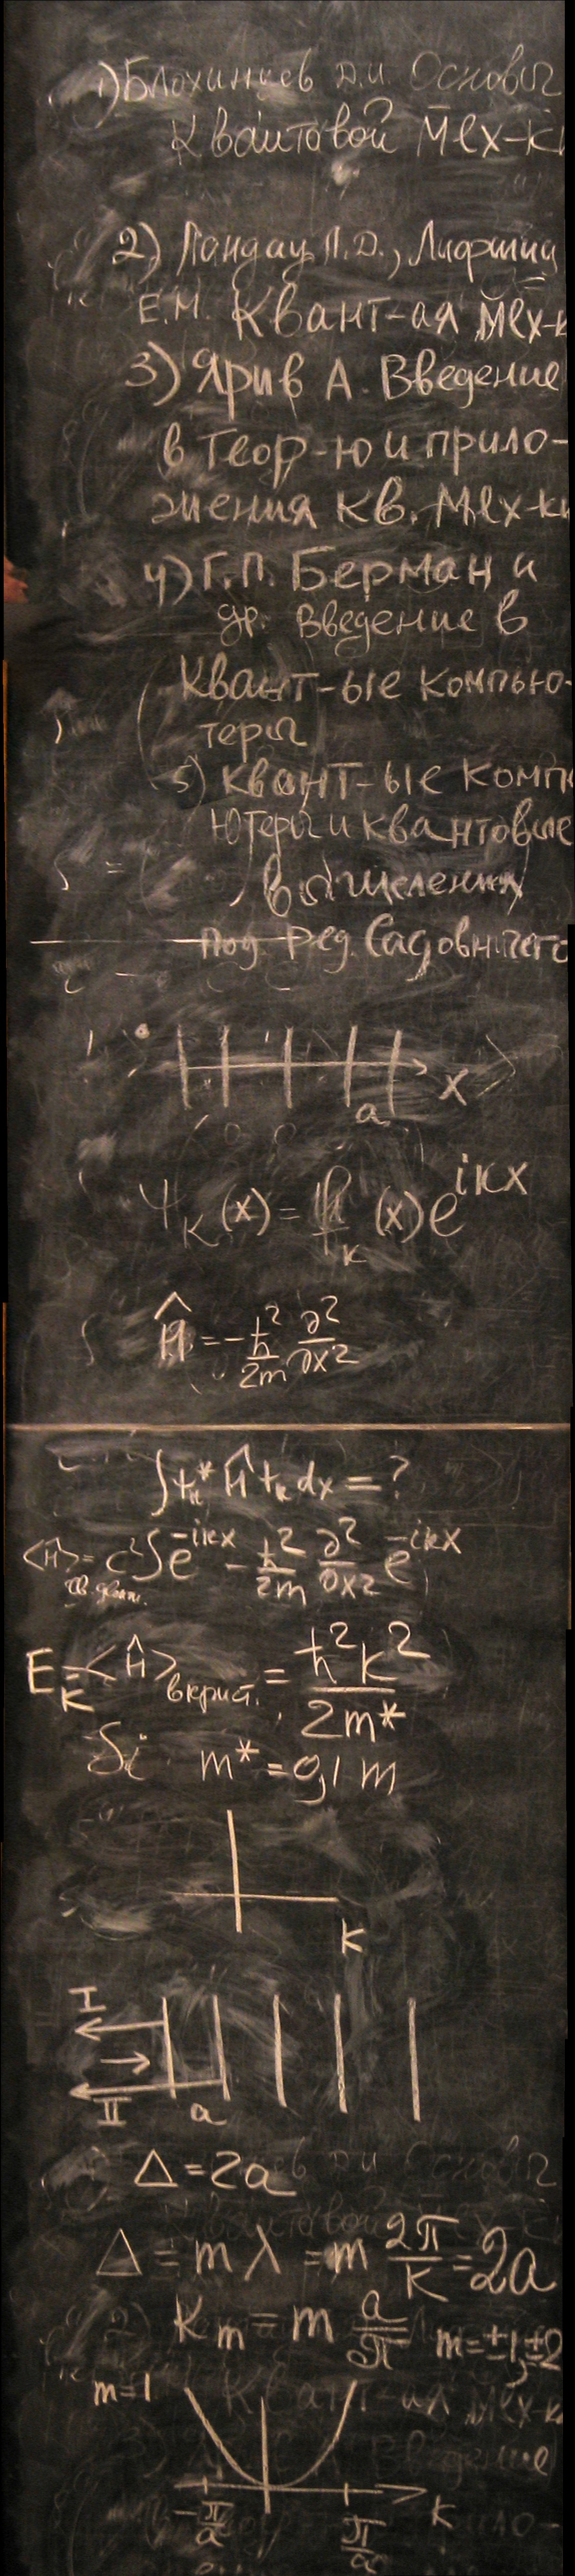 1) Блохинцев Д.И Основы
Квантовой Мех-ки
2) Ландау Л.Д., Лифшиц
Е.М. Квант-ая Мех-к
3) Ярив А. Введение
в Теор-ю и прило-
жения Кв. Мех-ки
4) Г.П. Берман и
др. Введение в
Квант-ые компью-
теры
5) Квант-ые комп
ютеры и квантовые
вычисления
Под. Ред. Садовничего
a x
ψ_K (x) = (x) e^{ikx}
Ĥ = -ħ²/2m ∂²/∂x²
∫ψ_k* Ĥ ψ_k dx = ?
<H> = c² ∫ e^{-ikx} - ħ²/2m ∂²/∂x² e^{-ikx}
св. движ.
E_K = <Ĥ> в крист. = ħ²k²/2m*
Si m* = 0,1 m
K
I
II a
Δ = 2a
Δ = mλ = m 2π/K = 2a
K_m = m a/π m = ±1, ±2
m = 1
-π/a π/a K